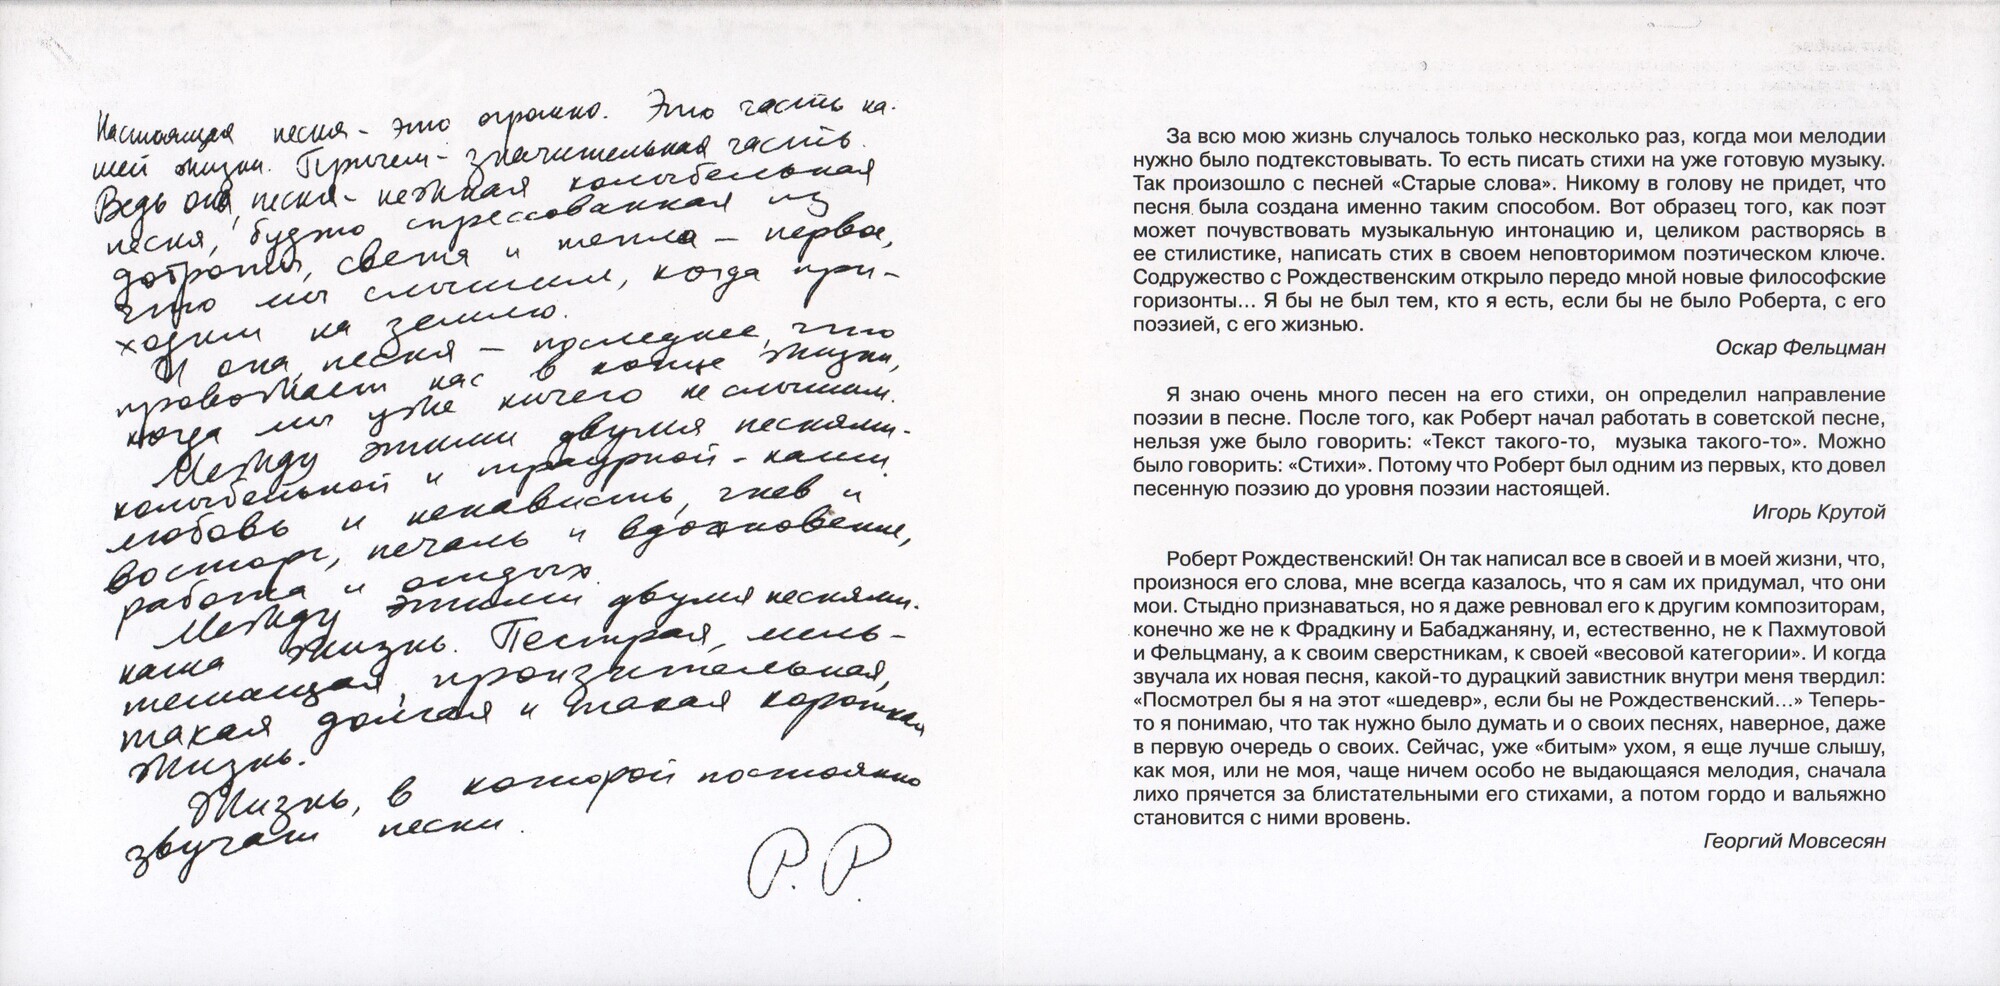 Настоящая песня - это огромно. Это часть на-
шей жизни. Причем - значительная часть.
Ведь она, песня - нежная колыбельная
песня, будто спрессованная из
доброты, света и тепла - первое,
что мы слышим, когда при-
ходим на землю.
И она, песня - последнее, что
провожает нас в конце жизни,
когда мы уже ничего не слышим.
Между этими двумя песнями -
колыбельной и траурной - наши
любовь и ненависть, гнев и
восторг, печаль и вдохновение,
работа и отдых.
Между этими двумя песнями -
наша жизнь. Пестрая, мель-
тешащая, пронзительная,
такая долгая и такая короткая
жизнь.
Жизнь, в которой постоянно
звучат песни.
Р. Р.
За всю мою жизнь случалось только несколько раз, когда мои мелодии
нужно было подтекстовывать. То есть писать стихи на уже готовую музыку.
Так произошло с песней «Старые слова». Никому в голову не придет, что
песня была создана именно таким способом. Вот образец того, как поэт
может почувствовать музыкальную интонацию и, целиком растворясь в
ее стилистике, написать стих в своем неповторимом поэтическом ключе.
Содружество с Рождественским открыло передо мной новые философские
горизонты... Я бы не был тем, кто я есть, если бы не было Роберта, с его
поэзией, с его жизнью.
Оскар Фельцман
Я знаю очень много песен на его стихи, он определил направление
поэзии в песне. После того, как Роберт начал работать в советской песне,
нельзя уже было говорить: «Текст такого-то, музыка такого-то». Можно
было говорить: «Стихи». Потому что Роберт был одним из первых, кто довел
песенную поэзию до уровня поэзии настоящей.
Игорь Крутой
Роберт Рождественский! Он так написал все в своей и в моей жизни, что,
произнося его слова, мне всегда казалось, что я сам их придумал, что они
мои. Стыдно признаваться, но я даже ревновал его к другим композиторам,
конечно же не к Фрадкину и Бабаджаняну, и, естественно, не к Пахмутовой
и Фельцману, а к своим сверстникам, к своей «весовой категории». И когда
звучала их новая песня, какой-то дурацкий завистник внутри меня твердил:
«Посмотрел бы я на этот «шедевр», если бы не Рождественский...» Теперь-
то я понимаю, что так нужно было думать и о своих песнях, наверное, даже
в первую очередь о своих. Сейчас, уже «битым» ухом, я еще лучше слышу,
как моя, или не моя, чаще ничем особо не выдающаяся мелодия, сначала
лихо прячется за блистательными его стихами, а потом гордо и вальяжно
становится с ними вровень.
Георгий Мовсесян